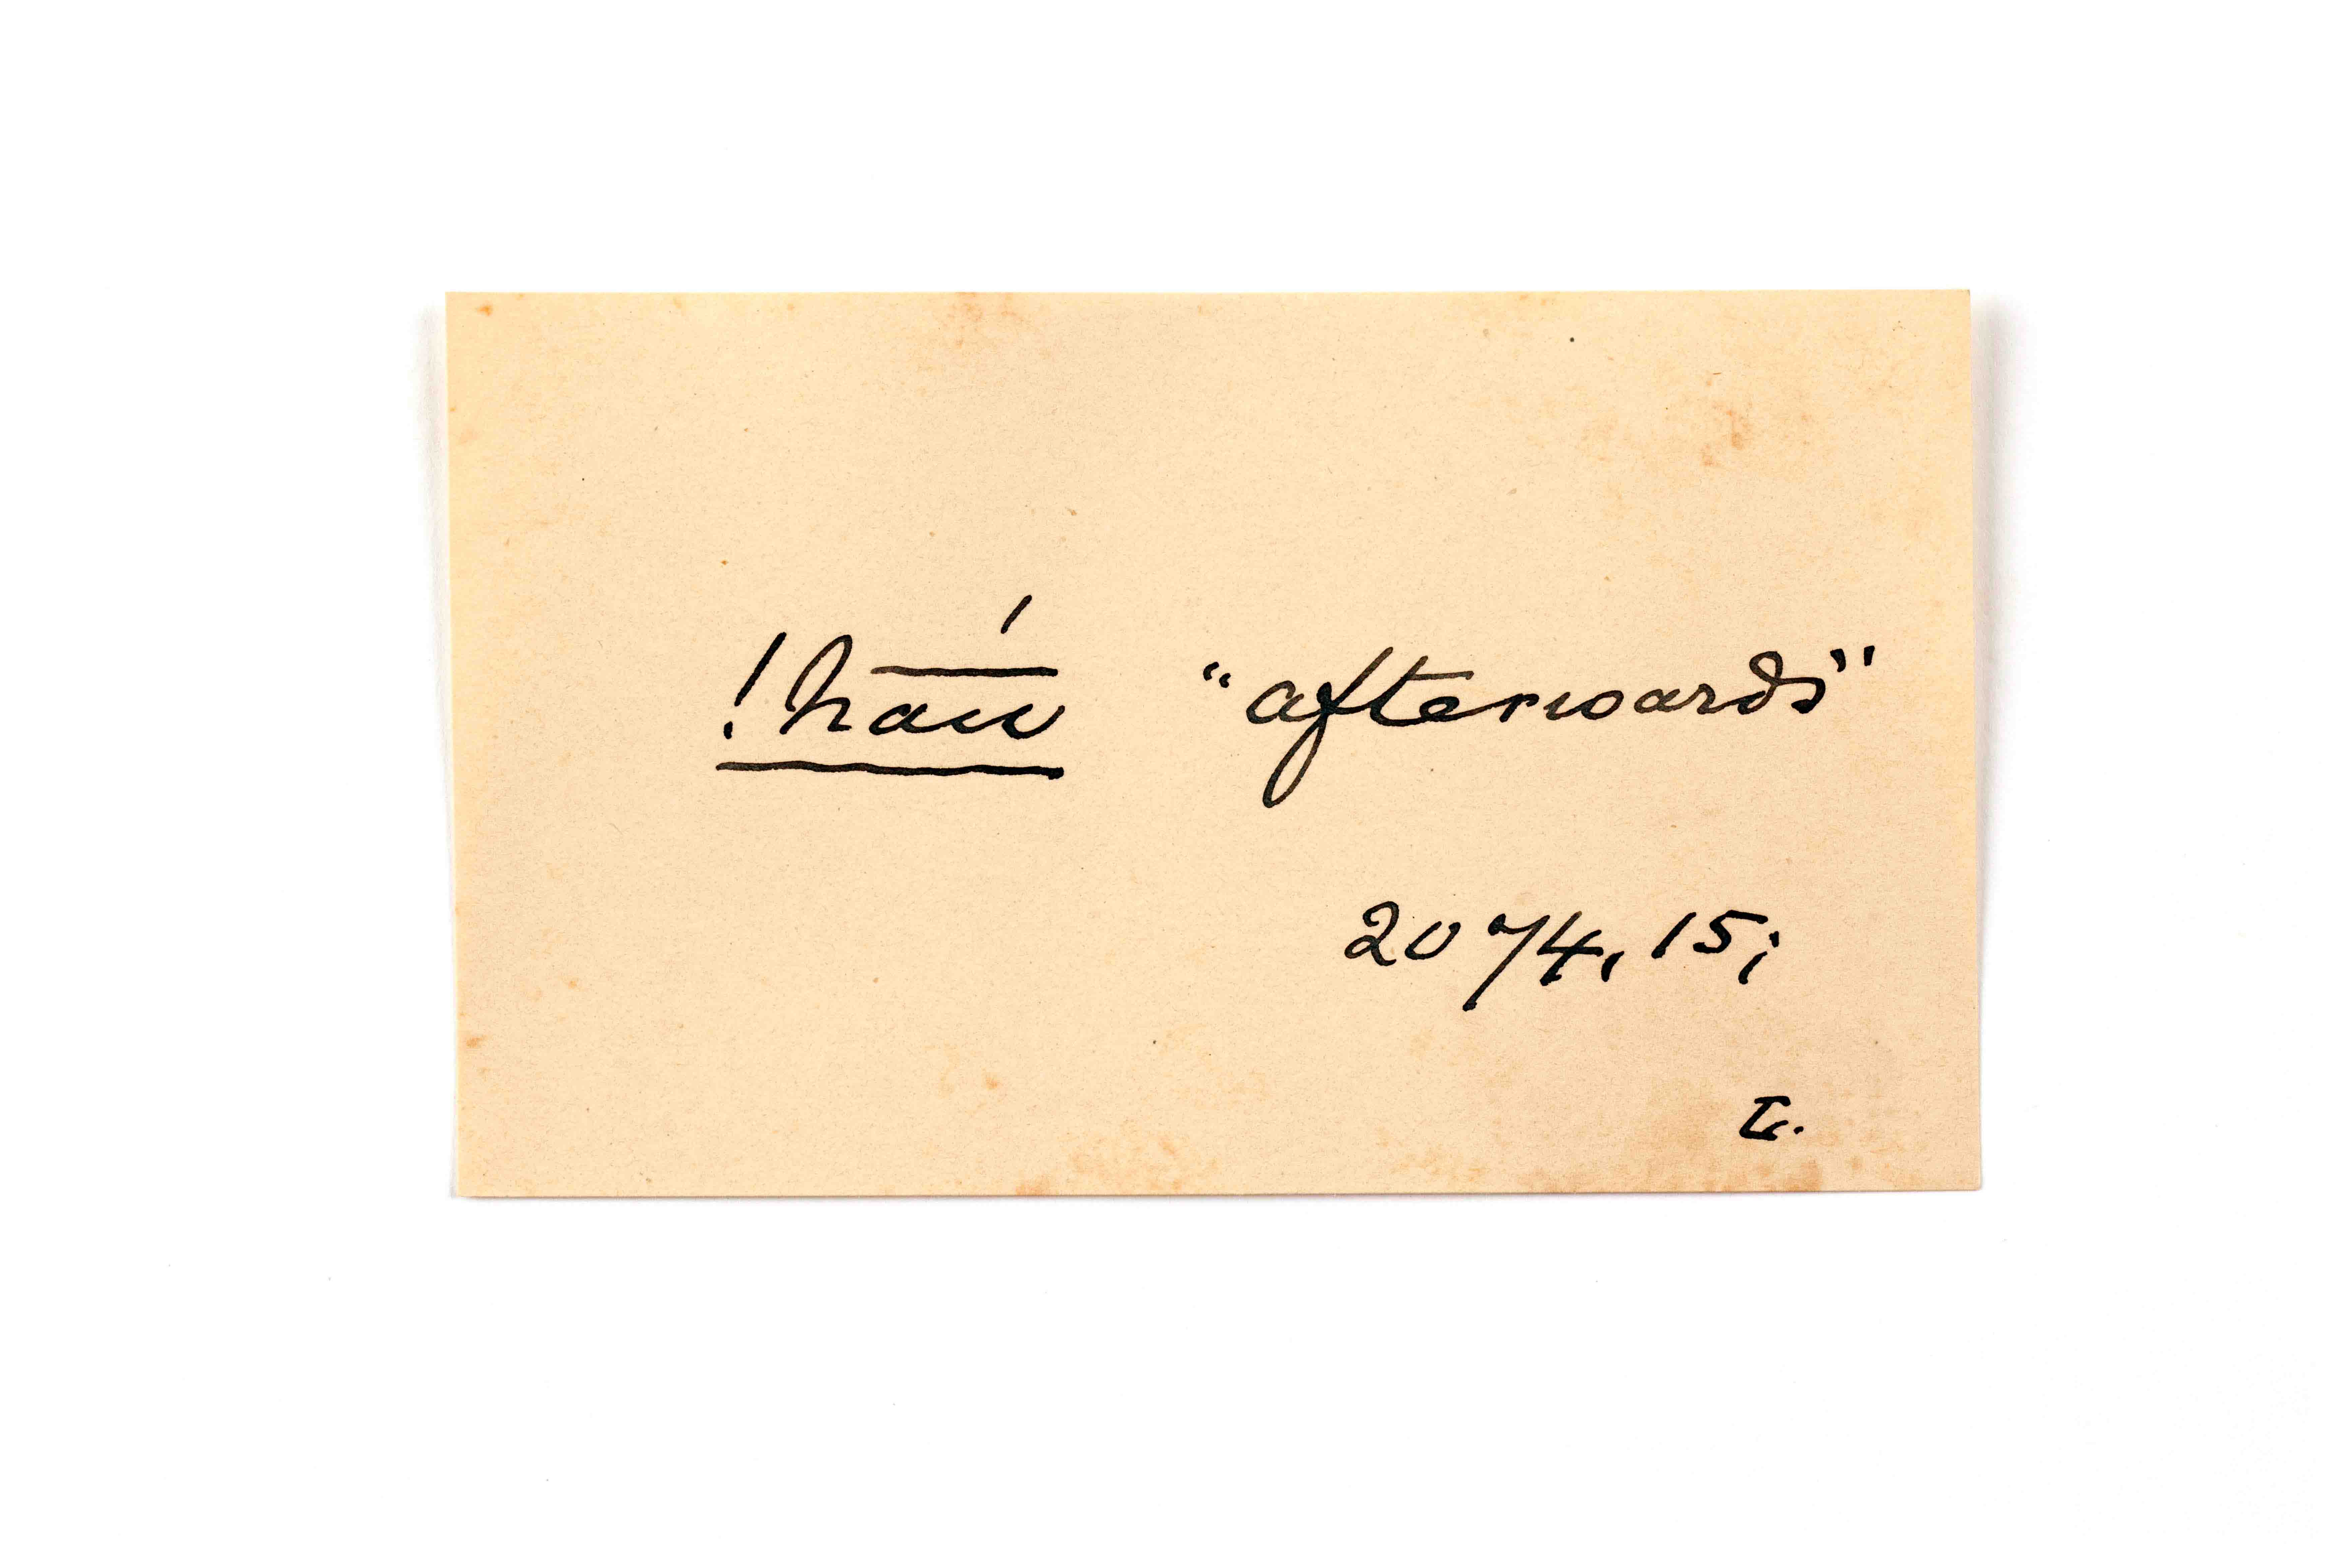 !hau̅́ "afterwards"
2074, 15;
L.